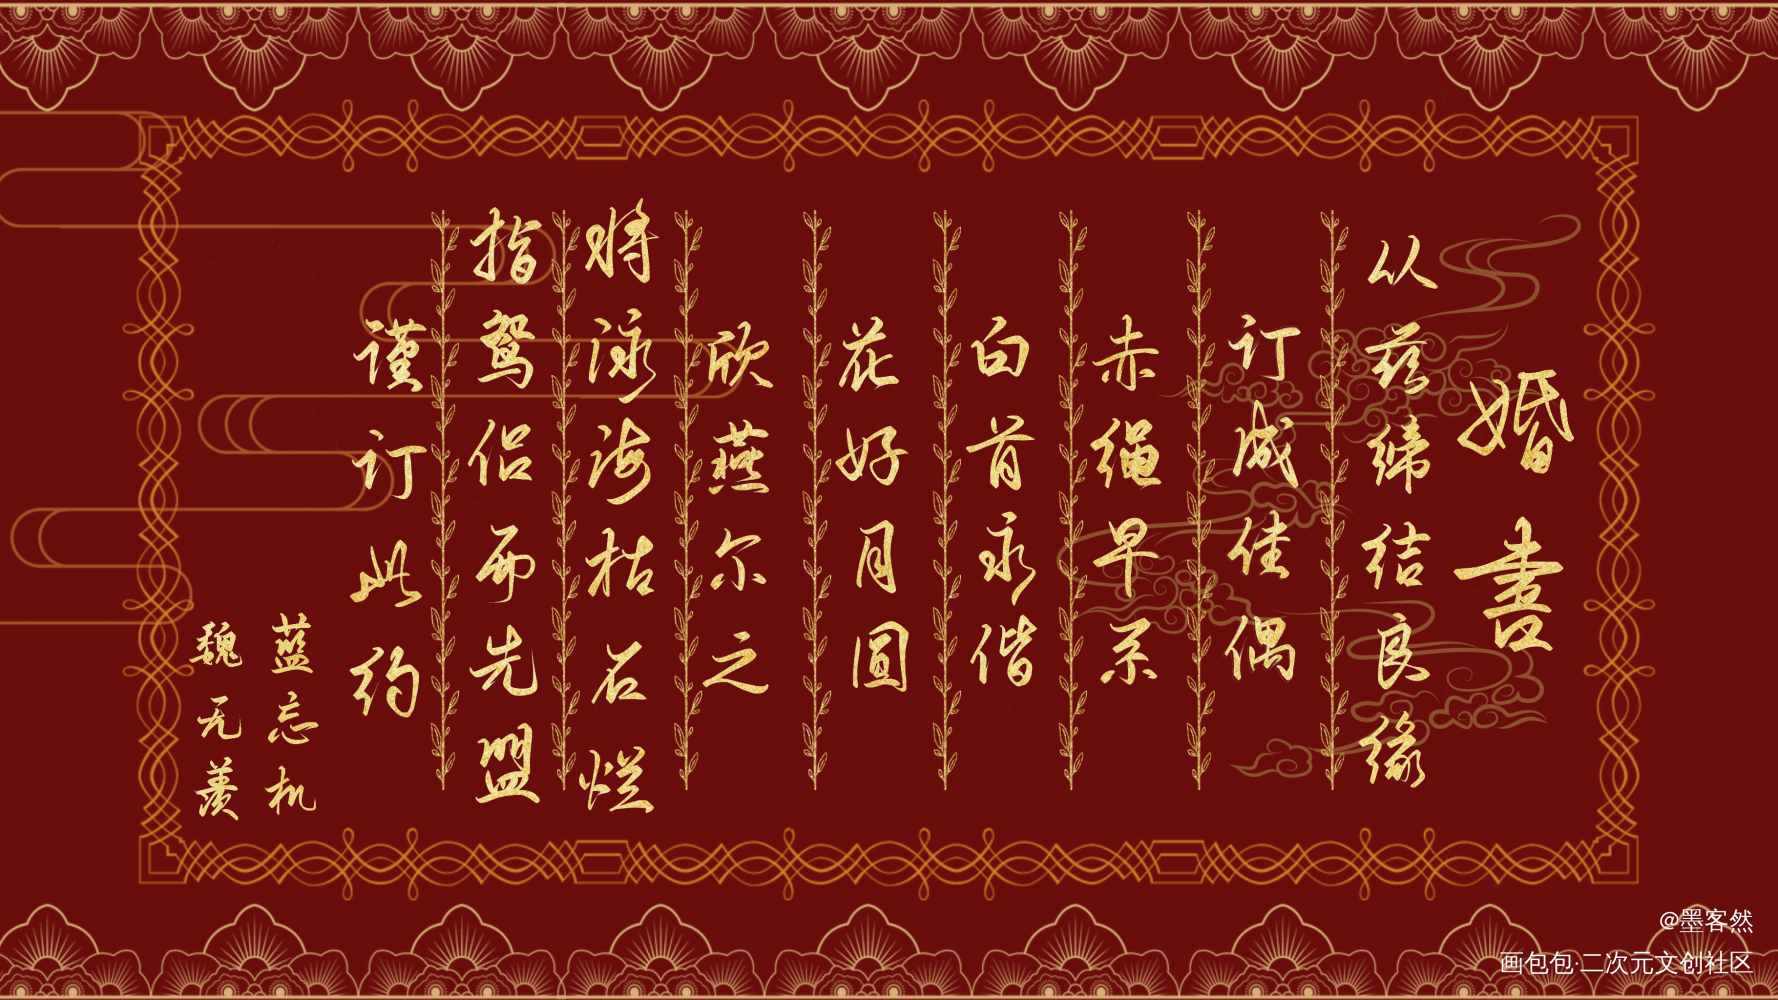 婚书
从兹缔结良缘
订成佳偶
赤绳早系
白首永偕
花好月圆
欣燕尔之
将泳海枯石烂
指鸳侣而先盟
谨订此约
蓝忘机
魏无羡
@墨客然
画包包·二次元文创社区